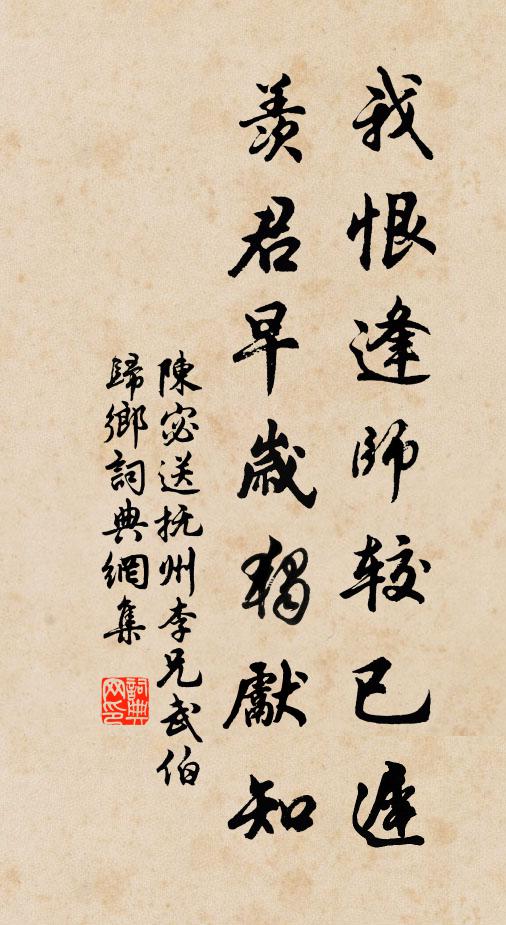 我恨逢师较已遲
羨君早歲獨獻知
陳宓送抚州李兄武伯
歸鄉詞典網集
詞典网印